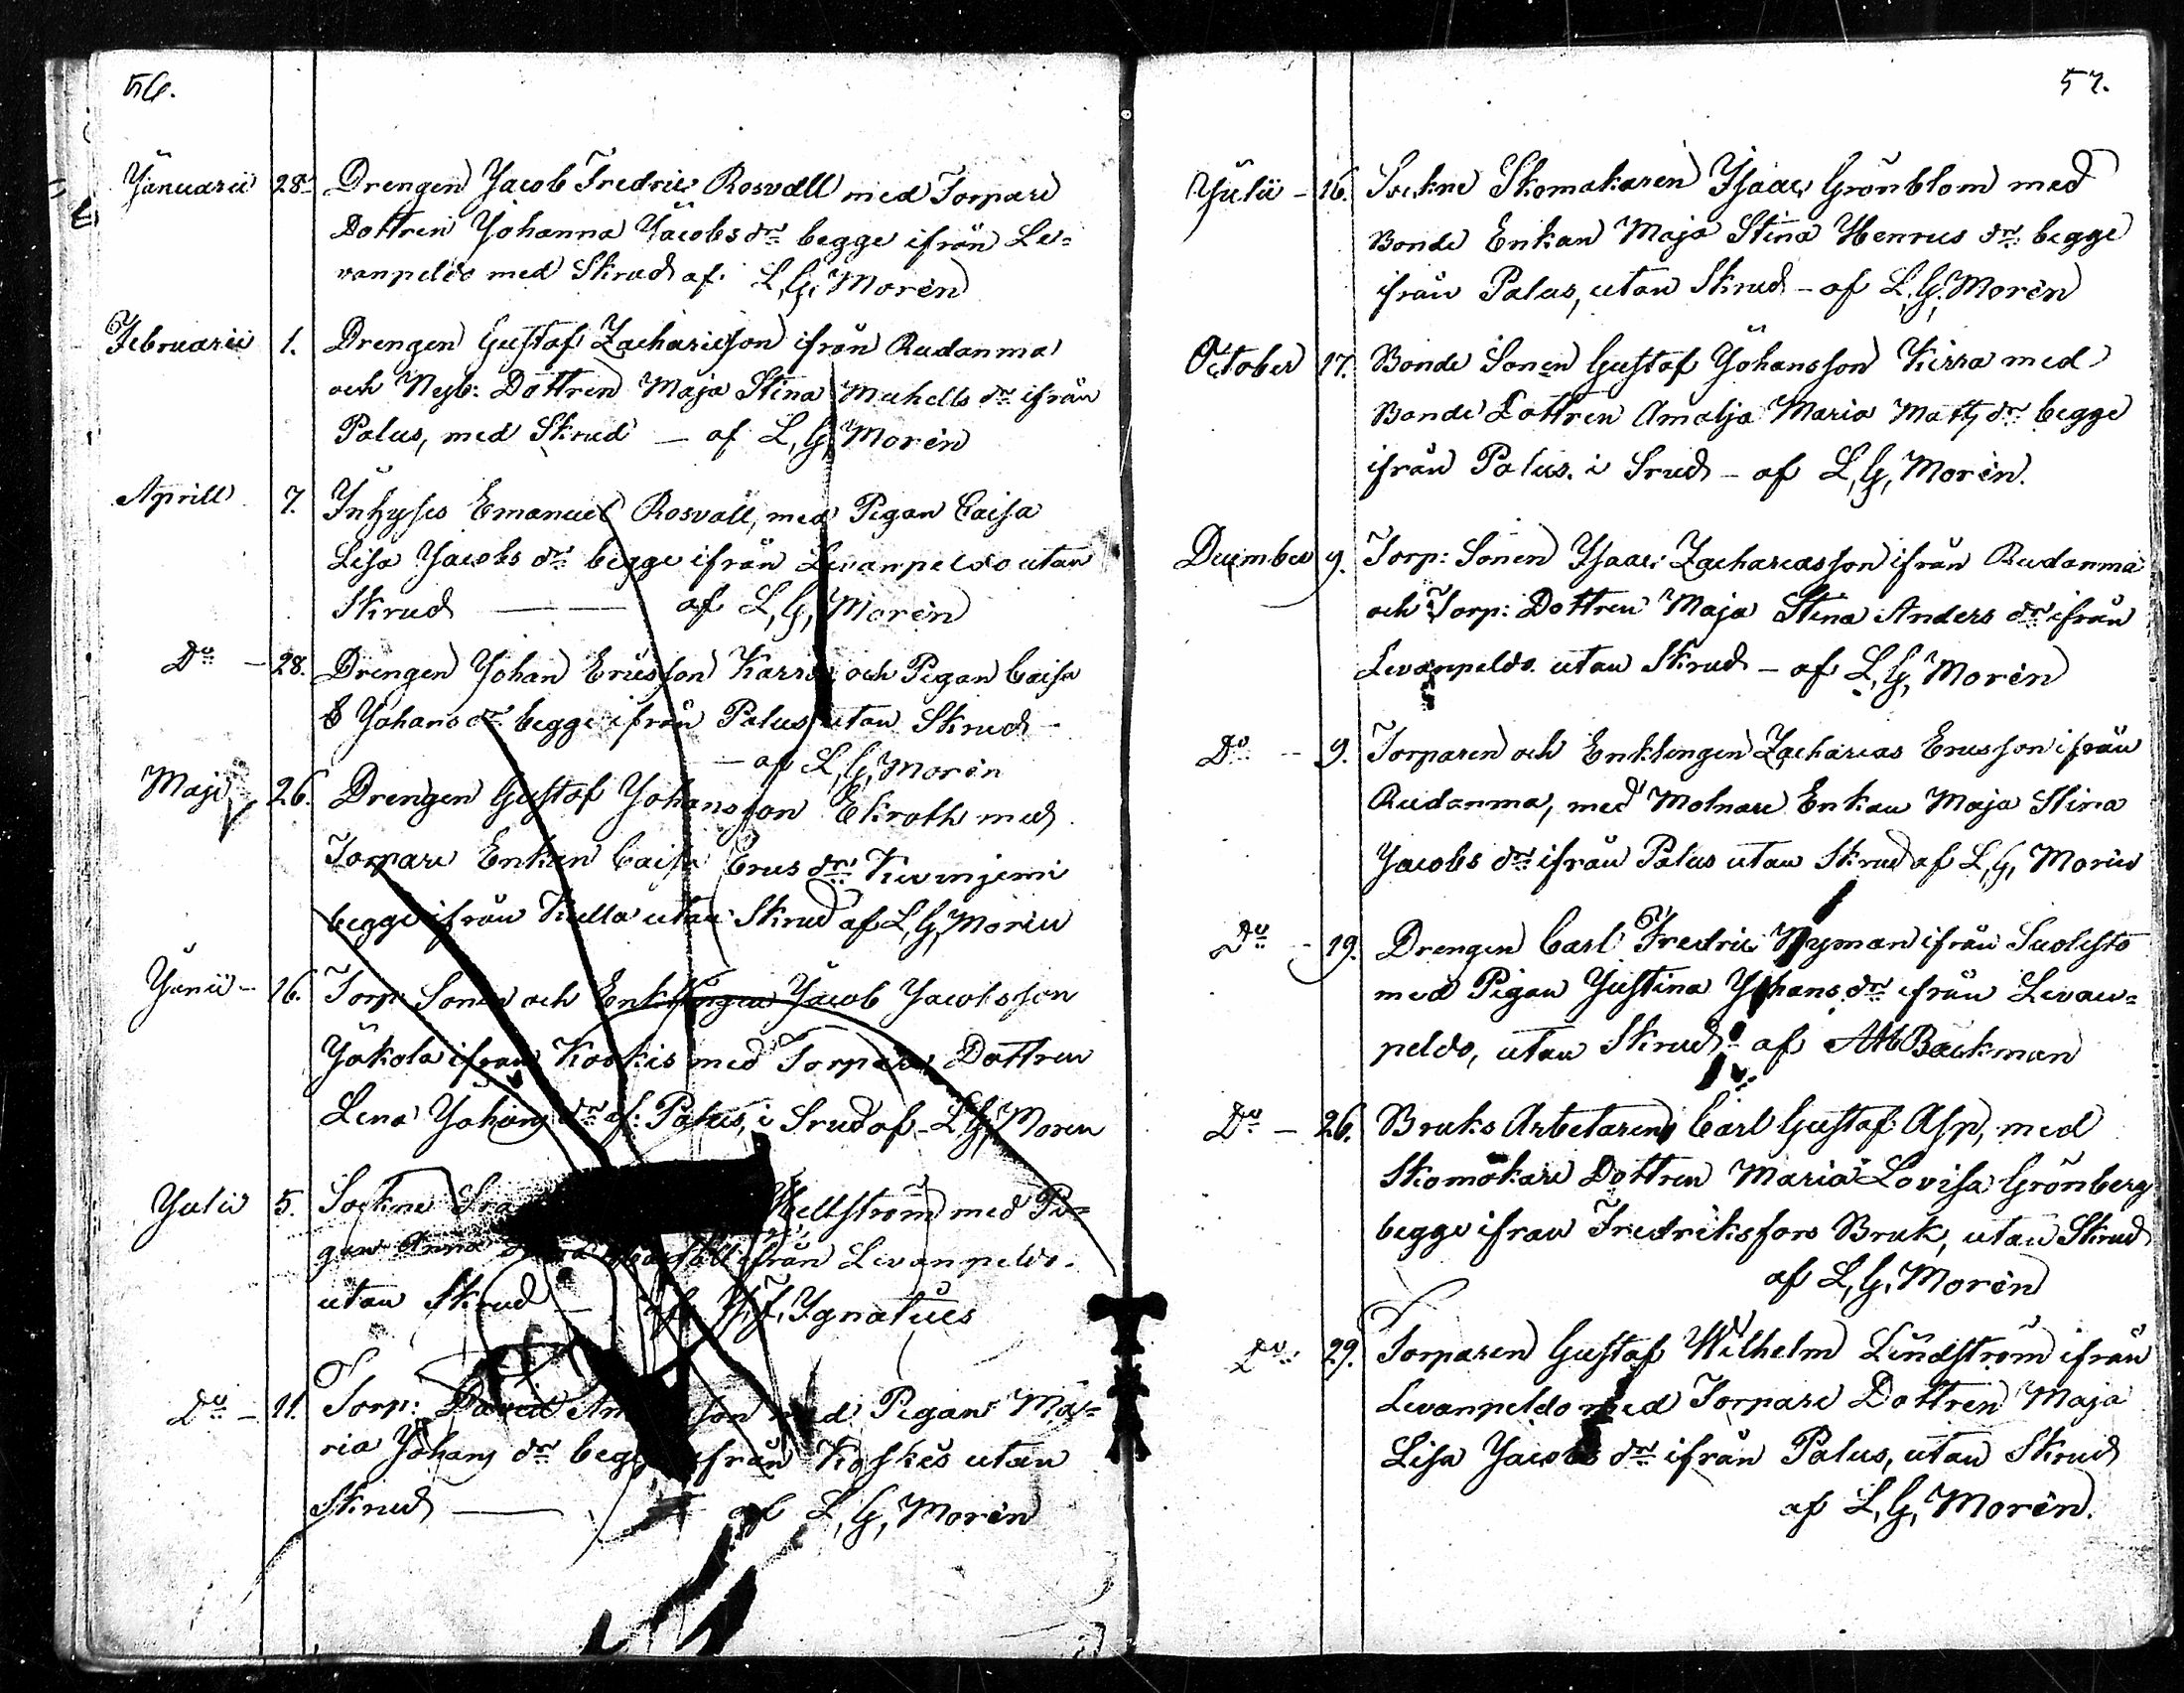 56.
Januarii 28. Drengen Jacob Fredric Rosvall med Torpare
Dottren Johanna Jacobs dr. begge ifrån Le=
vanpeldo med Skrud af L, G, Morèn
Februarii 1. Drengen Gustaf Zachariesson ifrån Rudanma
och Nyb: Dottren Maja Stina Michells dr. ifrån
Palus, med Skrud — af L, G, Morèn
Aprill 7. Inhyses Emanuel Rosvall, med Pigan Caisa
Lisa Jacobs dr. begge ifrån Levanpeldo utan
Skrud — — af L, G, Morèn
Do — 28. Drengen Johan Ericsson Karra och Pigan Caisa
Johans dr. begge ifrån Palus utan Skrud —
— af L, G, Morèn
Maji 26. Drengen Gustaf Johansson Ekroth med
Torpare Enkan Caisa Erics dr. Kivinjemi
begge ifrån Kulla utan Skrud af L, G, Morèn
Junii — 16. Torp: Sonen och Enklingen Jacob Jacobsson
Jäkola ifrån Koskis med Torpare Dottren
Lena Johans dr. if: Palus, i Srud af L, G, Morèn
Julii 5. Sockne Hellström med Pi=
gan Anna ifrån Levanpeldo.
utan Skrud — af Ignatius
Do — 11. Torp: David son med Pigan Ma=
ria Johans dr. begge ifrån Koskis utan
Skrud — af L, G, Morèn
57.
Julii — 16. Sockne Skomakaren Isaac Grönblom med
Bonde Enkan Maja Stina Henrics dr. begge
ifrån Palus, utan Skrud — af L, G, Morèn
October 17. Bonde Sonen Gustaf Johansson Kirra med
Bonde Dottren Amalja Maria Matts dr. begge
ifrån Palus. i Srud — af L, G, Morèn.
December 9. Torp: Sonen Isaac Zachariasson ifrån Rudanma
och Torp: Dottren Maja Stina Anders dr. ifrån
Levanpeldo utan Skrud — af L, G, Morèn
Do — 9. Torparen och Enklingen Zacharias Ericsson ifrån
Rudanma, med Molnare Enkan Maja Stina
Jacobs dr. ifrån Palus utan Skrud af L, G, Morèn
Do — 19. Drengen Carl Fredric Nyman ifrån Suolisto
med Pigan Justina Johans dr. ifrån Levan=
peldo, utan Skrud af Backman
Do — 26. Bruks Arbetaren Carl Gustaf Asp, med
Skomakare Dottren Maria Lovisa Grönberg
begge ifrån Fredriksfors Bruk, utan Skrud
af L, G, Morèn
Do: 29. Torparen Gustaf Wilhelm Lindström ifrån
Levanpeldo med Torpare Dottren Maja
Lisa Jacobs dr. ifrån Palus, utan Skrud
af L, G, Morèn.